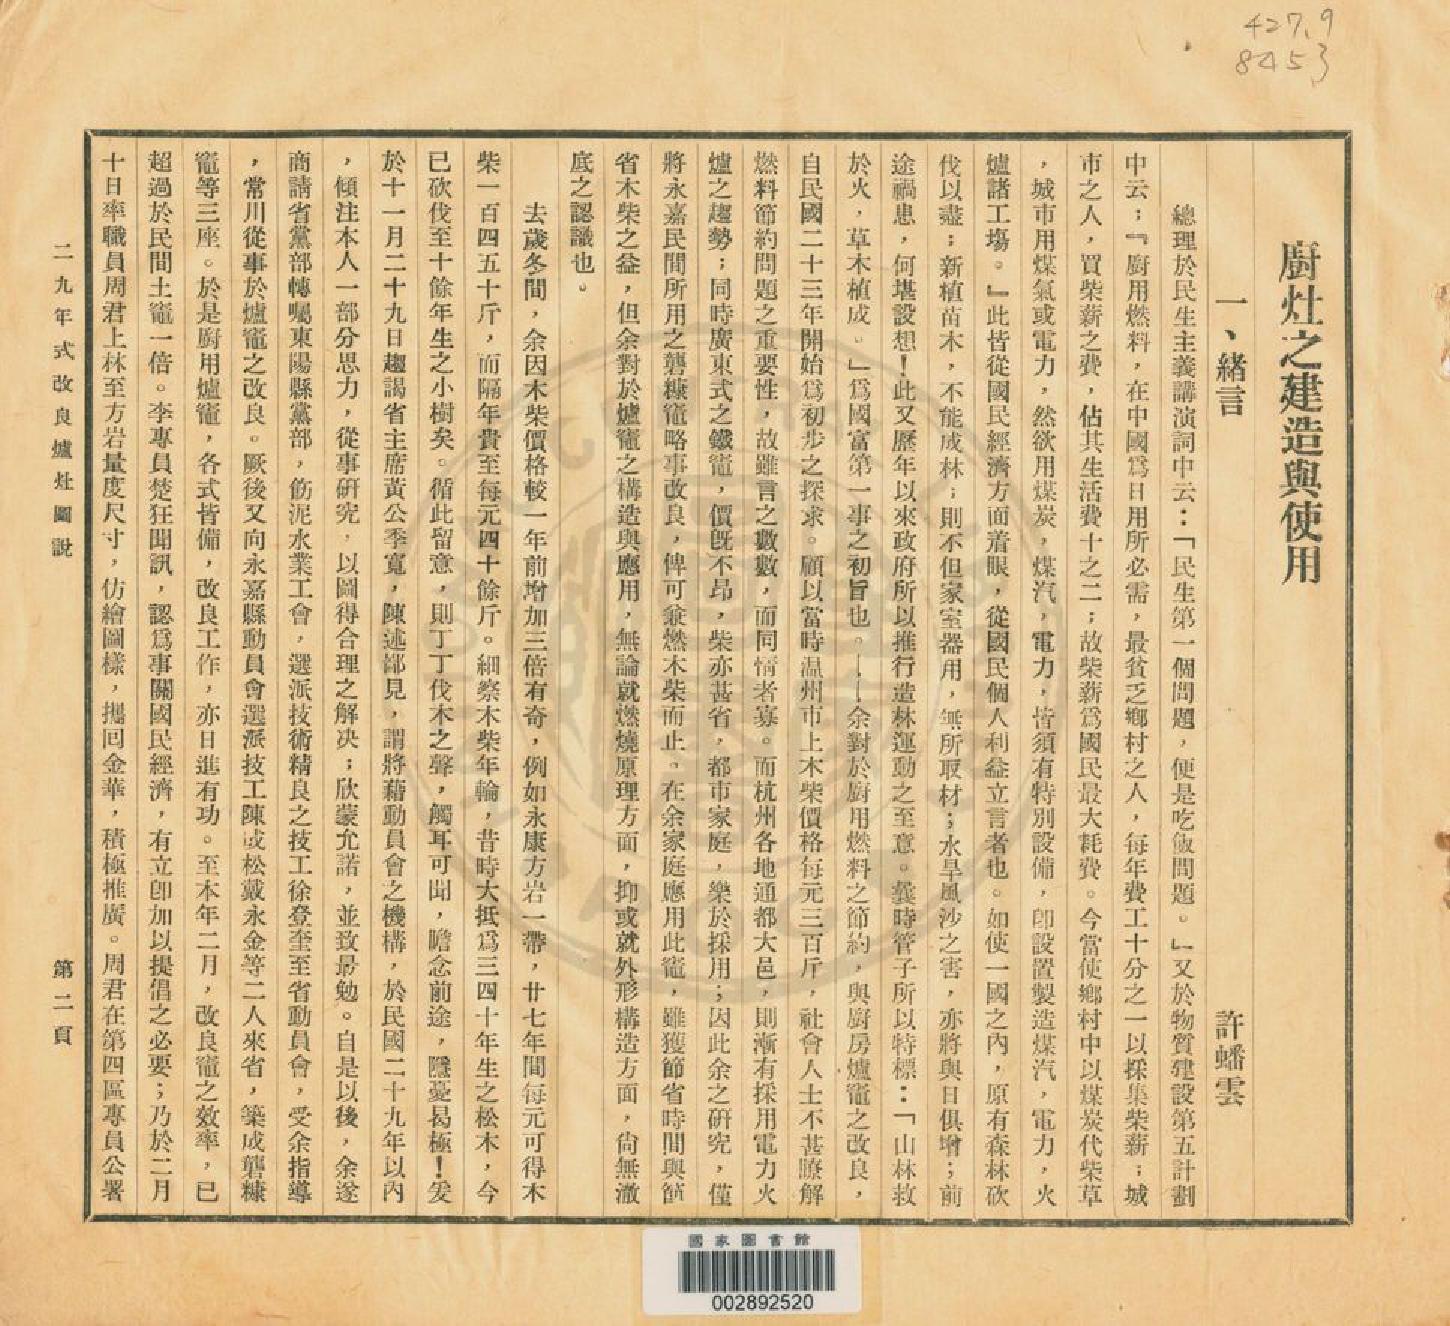 427.9
8453
廚灶之建造與使用
一、緒言
許蟠雲
總理於民生主義講演詞中云：「民生第一個問題，便是吃飯問題。」又於物質建設第五計劃
中云；「廚用燃料，在中國爲日用所必需，最貧乏鄉村之人，每年費工十分之一以採集柴薪；城
市之人，買柴薪之費，佔其生活費十之二；故柴薪爲國民最大耗費。今當使鄉村中以煤炭代柴草
，城市用煤氣或電力，然欲用煤炭，煤汽，電力，皆須有特別設備，卽設置製造煤汽，電力，火
爐諸工場。」此皆從國民經濟方面着眼，從國民個人利益立言者也。如使一國之內，原有森林砍
伐以盡；新植苗木，不能成林；則不但家室器用，無所取材；水旱風沙之害，亦將與日俱增；前
途禍患，何堪設想！此又歷年以來政府所以推行造林運動之至意。曩時管子所以特標：「山林救
於火，草木植成。」爲國富第一事之初旨也。——余對於廚用燃料之節約，與廚房爐竈之改良，
自民國二十三年開始爲初步之探求。顧以當時温州市上木柴價格每元三百斤，社會人士不甚瞭解
燃料節約問題之重要性，故雖言之數數，而同情者寡。而杭州各地通都大邑，則漸有採用電力火
爐之趨勢；同時廣東式之鐵竈，價旣不昂，柴亦甚省，都市家庭，樂於採用；因此余之研究，僅
將永嘉民間所用之礱糠竈略事改良，俾可兼燃木柴而止。在余家庭應用此竈，雖獲節省時間與節
省木柴之益，但余對於爐竈之構造與應用，無論就燃燒原理方面，抑或就外形構造方面，尙無澈
底之認識也。
去歲冬間，余因木柴價格較一年前增加三倍有奇，例如永康方岩一帶，廿七年間每元可得木
柴一百四五十斤，而隔年貴至每元四十餘斤。細察木柴年輪，昔時大抵爲三四十年生之松木，今
已砍伐至十餘年生之小樹矣。循此留意，則丁丁伐木之聲，觸耳可聞，瞻念前途，隱憂曷極！爰
於十一月二十九日趨謁省主席黃公季寬，陳述鄙見，謂將藉動員會之機構，於民國二十九年以內
，傾注本人一部分思力，從事研究，以圖得合理之解决；欣蒙允諾，並致勗勉。自是以後，余遂
商請省黨部轉囑東陽縣黨部，飭泥水業工會，選派技術精良之技工徐登奎至省動員會，受余指導
，常川從事於爐竈之改良。厥後又向永嘉縣動員會選派技工陳成松戴永金等二人來省，築成礱糠
竈等三座。於是廚用爐竈，各式皆備，改良工作，亦日進有功。至本年二月，改良竈之效率，已
超過於民間土竈一倍。李專員楚狂聞訊，認爲事關國民經濟，有立卽加以提倡之必要；乃於二月
十日率職員周君上林至方岩量度尺寸，仿繪圖樣，攜回金華，積極推廣。周君在第四區專員公署
二九年式改良爐灶圖說
第二頁
國家圖書館
002892520